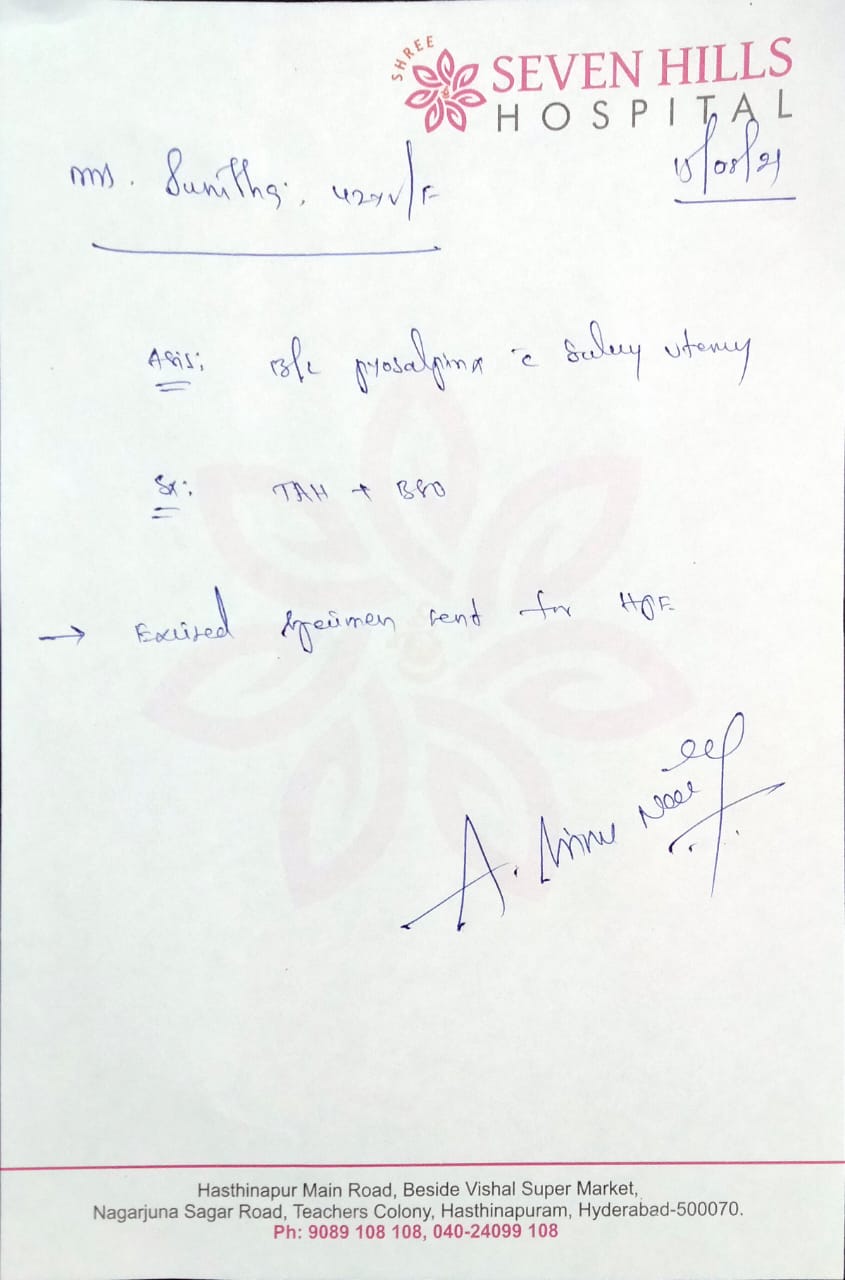 SHREE
SEVEN HILLS
HOSPITAL
Mrs. Sunitha, 42y/F
15/08/21
B/L pyosalpinx c̄ bulky uterus
Sx: TAH + BSO
→ Excised specimen sent for HPE
A.
Hasthinapur Main Road, Beside Vishal Super Market,
Nagarjuna Sagar Road, Teachers Colony, Hasthinapuram, Hyderabad-500070.
Ph: 9089 108 108, 040-24099 108